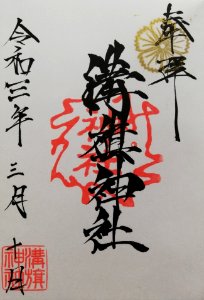 奉拝
溝旗神社
令和三年三月十日
溝旗
神社